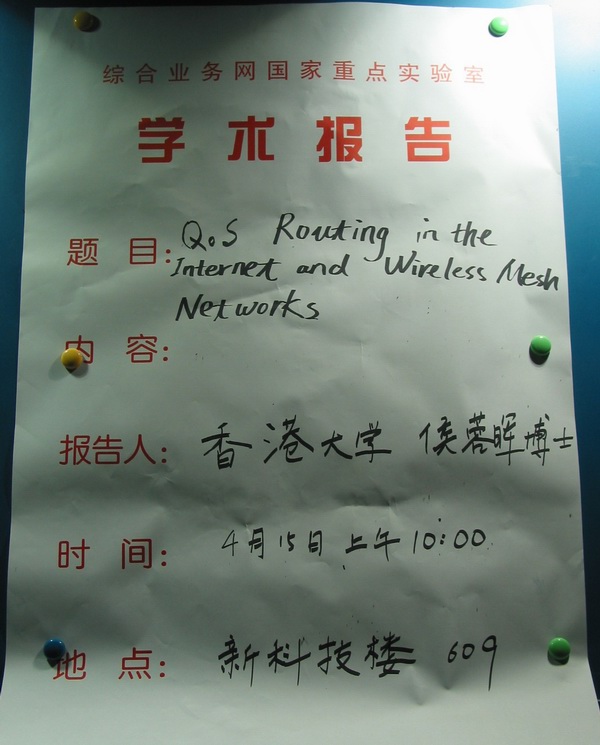 综合业务网国家重点实验室
学术报告
题 目: QoS Routing in the
Internet and Wireless Mesh
Networks
内 容:
报告人: 香港大学 侯蓉晖博士
时 间: 4月15日 上午10:00
地 点: 新科技楼 609